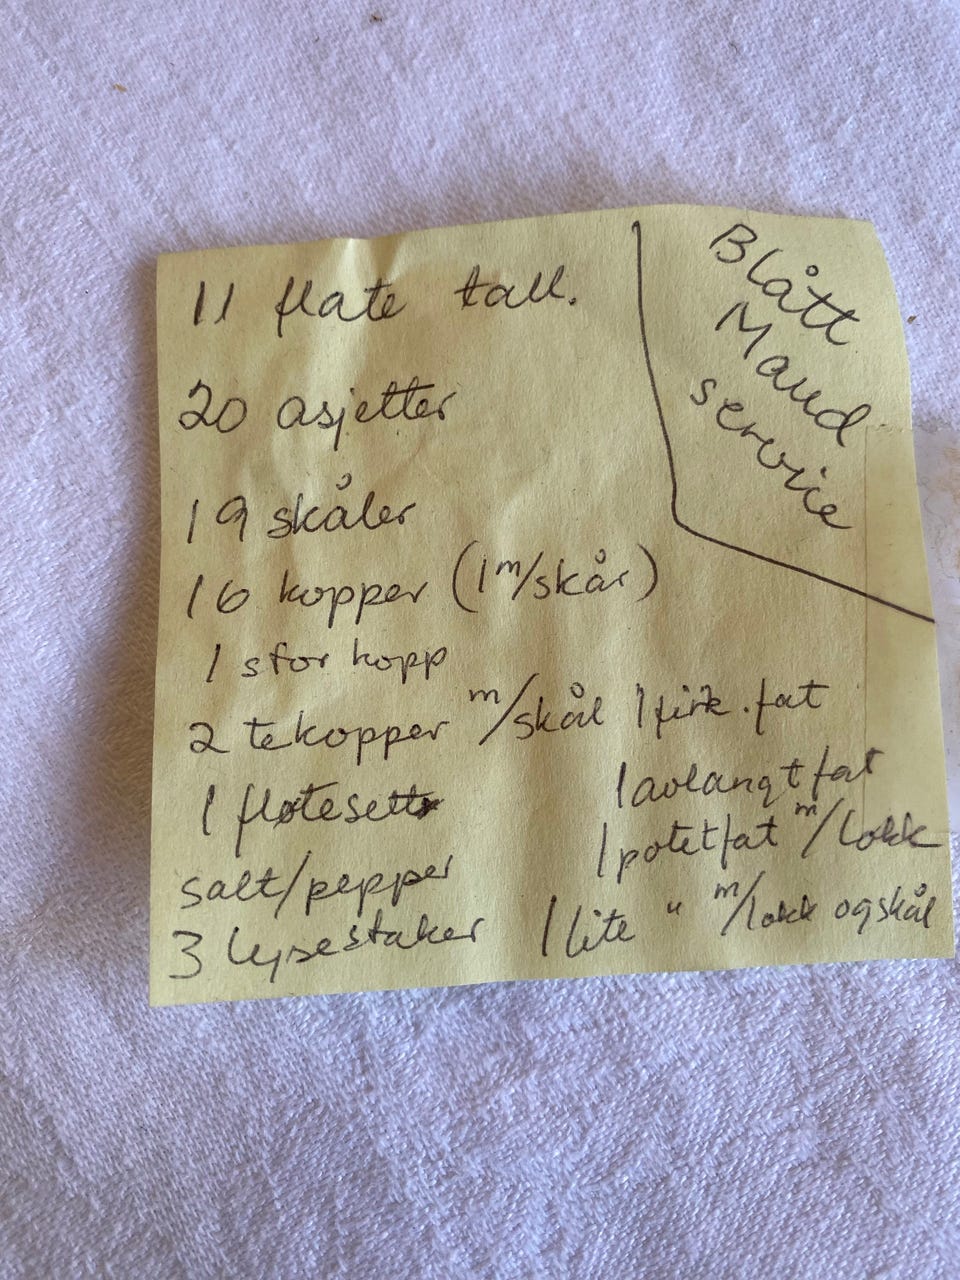 Blått
Maud
service
11 flate tall.
20 asjetter
19 skåler
16 kopper (1 m/skår)
1 stor kopp
2 tekopper m/skål
1 fløtesett
salt/pepper
3 lysestaker
1 firk. fat
1 avlangt fat
1 potetfat m/lokk
1 lite " m/lokk og skål